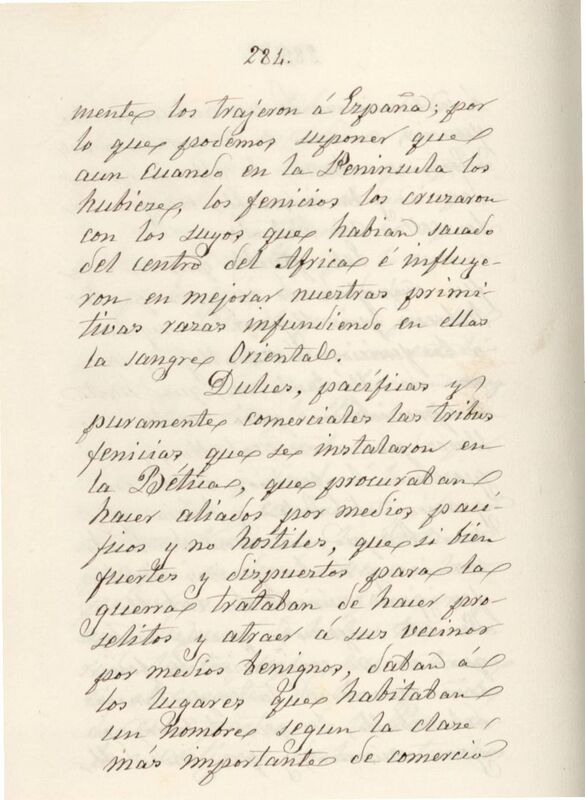 284.
mente los trajeron á España; por
lo que podemos suponer que
aun cuando en la Peninsula los
hubiese, los fenicios los cruzaron
con los suyos que habian sacado
del centro del Africa é influye-
ron en mejorar nuestras primi-
tivas razas infundiendo en ellas
la sangre Oriental.
Dulces, pacíficas y
puramente comerciales las tribus
fenicias que se instalaron en
la Bética, que procuraban
hacer aliados por medios pací-
ficos y no hostiles, que si bien
fuertes y dispuestos para la
guerra trataban de hacer pro-
selitos y atraer á sus vecinos
por medios benignos, daban á
los lugares que habitaban
un nombre segun la clase
más importante de comercio